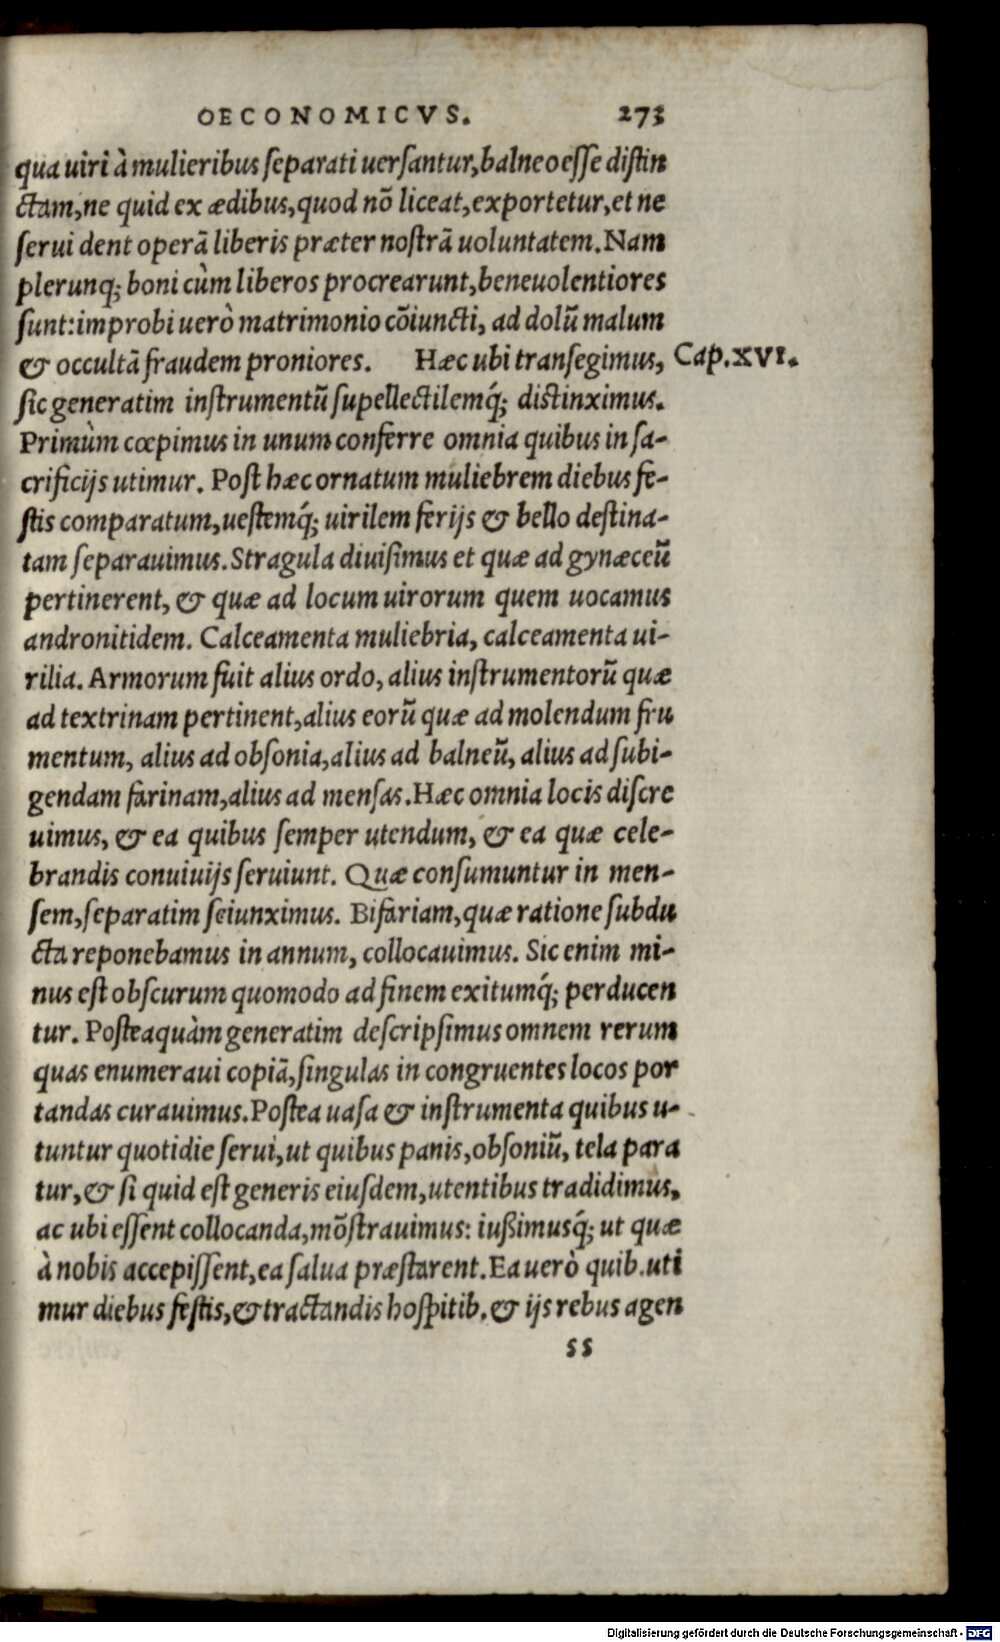 OECONOMICVS. 273
qua uiri à mulieribus ſeparati uerſantur, balneo eſſe diſtin
ctam, ne quid ex ædibus, quod nō liceat, exportetur, et ne
ſerui dent operā liberis præter noſtrā uoluntatem. Nam
plerunq; boni cùm liberos procrearunt, beneuolentiores
ſunt: improbi uerò matrimonio cōiuncti, ad dolū malum
& occultā fraudem proniores. Hæc ubi tranſegimus, Cap. XVI.
ſic generatim inſtrumentū ſupellectilemq́; diſtinximus.
Primùm cœpimus in unum conferre omnia quibus in ſa-
crificijs utimur. Poſt hæc ornatum muliebrem diebus fe-
ſtis comparatum, ueſtemq́; uirilem ferijs & bello deſtina-
tam ſeparauimus. Stragula diuiſimus et quæ ad gynæceū
pertinerent, & quæ ad locum uirorum quem uocamus
andronitidem. Calceamenta muliebria, calceamenta ui-
rilia. Armorum fuit alius ordo, alius inſtrumentorū quæ
ad textrinam pertinent, alius eorū quæ ad molendum fru
mentum, alius ad obſonia, alius ad balneū, alius ad ſubi-
gendam farinam, alius ad menſas. Hæc omnia locis diſcre
uimus, & ea quibus ſemper utendum, & ea quæ cele-
brandis conuiuijs ſeruiunt. Quæ conſumuntur in men-
ſem, ſeparatim ſeiunximus. Bifariam, quæ ratione ſubdu
cta reponebamus in annum, collocauimus. Sic enim mi-
nus eſt obſcurum quomodo ad finem exitumq́; perducen
tur. Poſteaquàm generatim deſcripſimus omnem rerum
quas enumeraui copiā, ſingulas in congruentes locos por
tandas curauimus. Poſtea uaſa & inſtrumenta quibus u-
tuntur quotidie ſerui, ut quibus panis, obſoniū, tela para
tur, & ſi quid eſt generis eiuſdem, utentibus tradidimus,
ac ubi eſſent collocanda, mōſtrauimus: iußimusq́; ut quæ
à nobis accepiſſent, ea ſalua præſtarent. Ea uerò quib. uti
mur diebus feſtis, & tractandis hoſpitib. & ijs rebus agen
ss
Digitalisierung gefördert durch die Deutsche Forschungsgemeinschaft - DFG